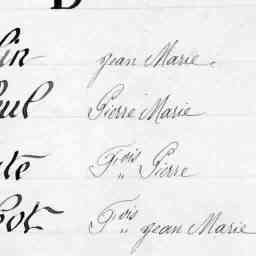 D
lin Jean Marie.
aul Pierre Marie
te Fois Pierre
bot Fois " Jean Marie